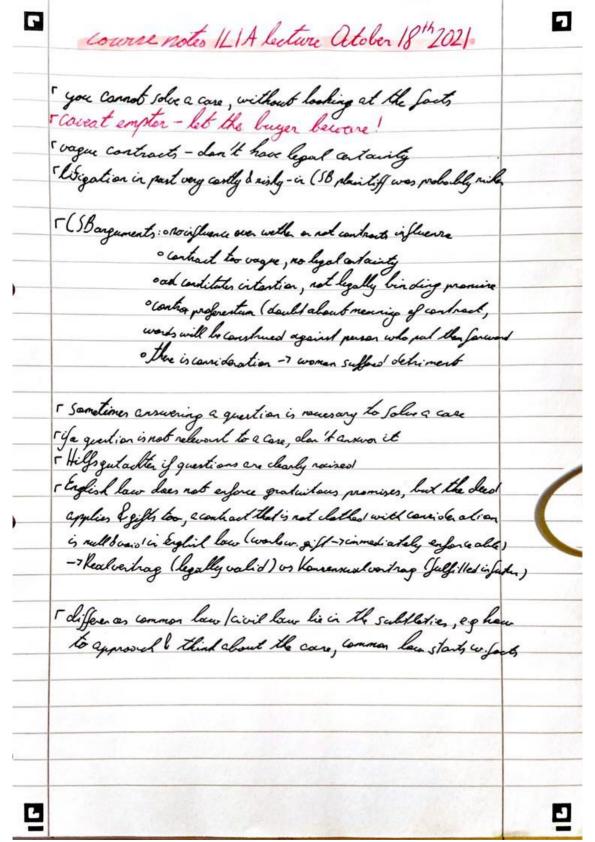 course notes ILIA lecture October 18th 2021
you cannot solve a case, without looking at the facts
caveat empter - let the buyer beware!
vague contracts - don't have legal certainity
litigation in past very costly & risky - in CSB plaintiff was probably
CSB arguments: o no influence over wether or not contracts influenza
o contract too vague, no legal certainity
o ad constitutes intention, not legally binding promise
o contra proferentum (doubt about meaning of contract,
words will be construed against person who put them forward
o there is consideration -> woman suffered detriment
sometimes answering a question is necessary to solve a case
if a question is not relevant to a case, don't answer it
Hilfsgutachter if questions are clearly raised
English law does not enforce gratuitous promises, but the deed
applies & gifts too, a contract that is not clothed with consideration
is null & void in English law ( gift -> immediately enforceable)
-> Realvertrag (legally valid) vs Konsensualvertrag (fulfilled in )
differences common law / civil law lie in the subtleties, e.g. how
to approach & think about the case, common law starts w. facts